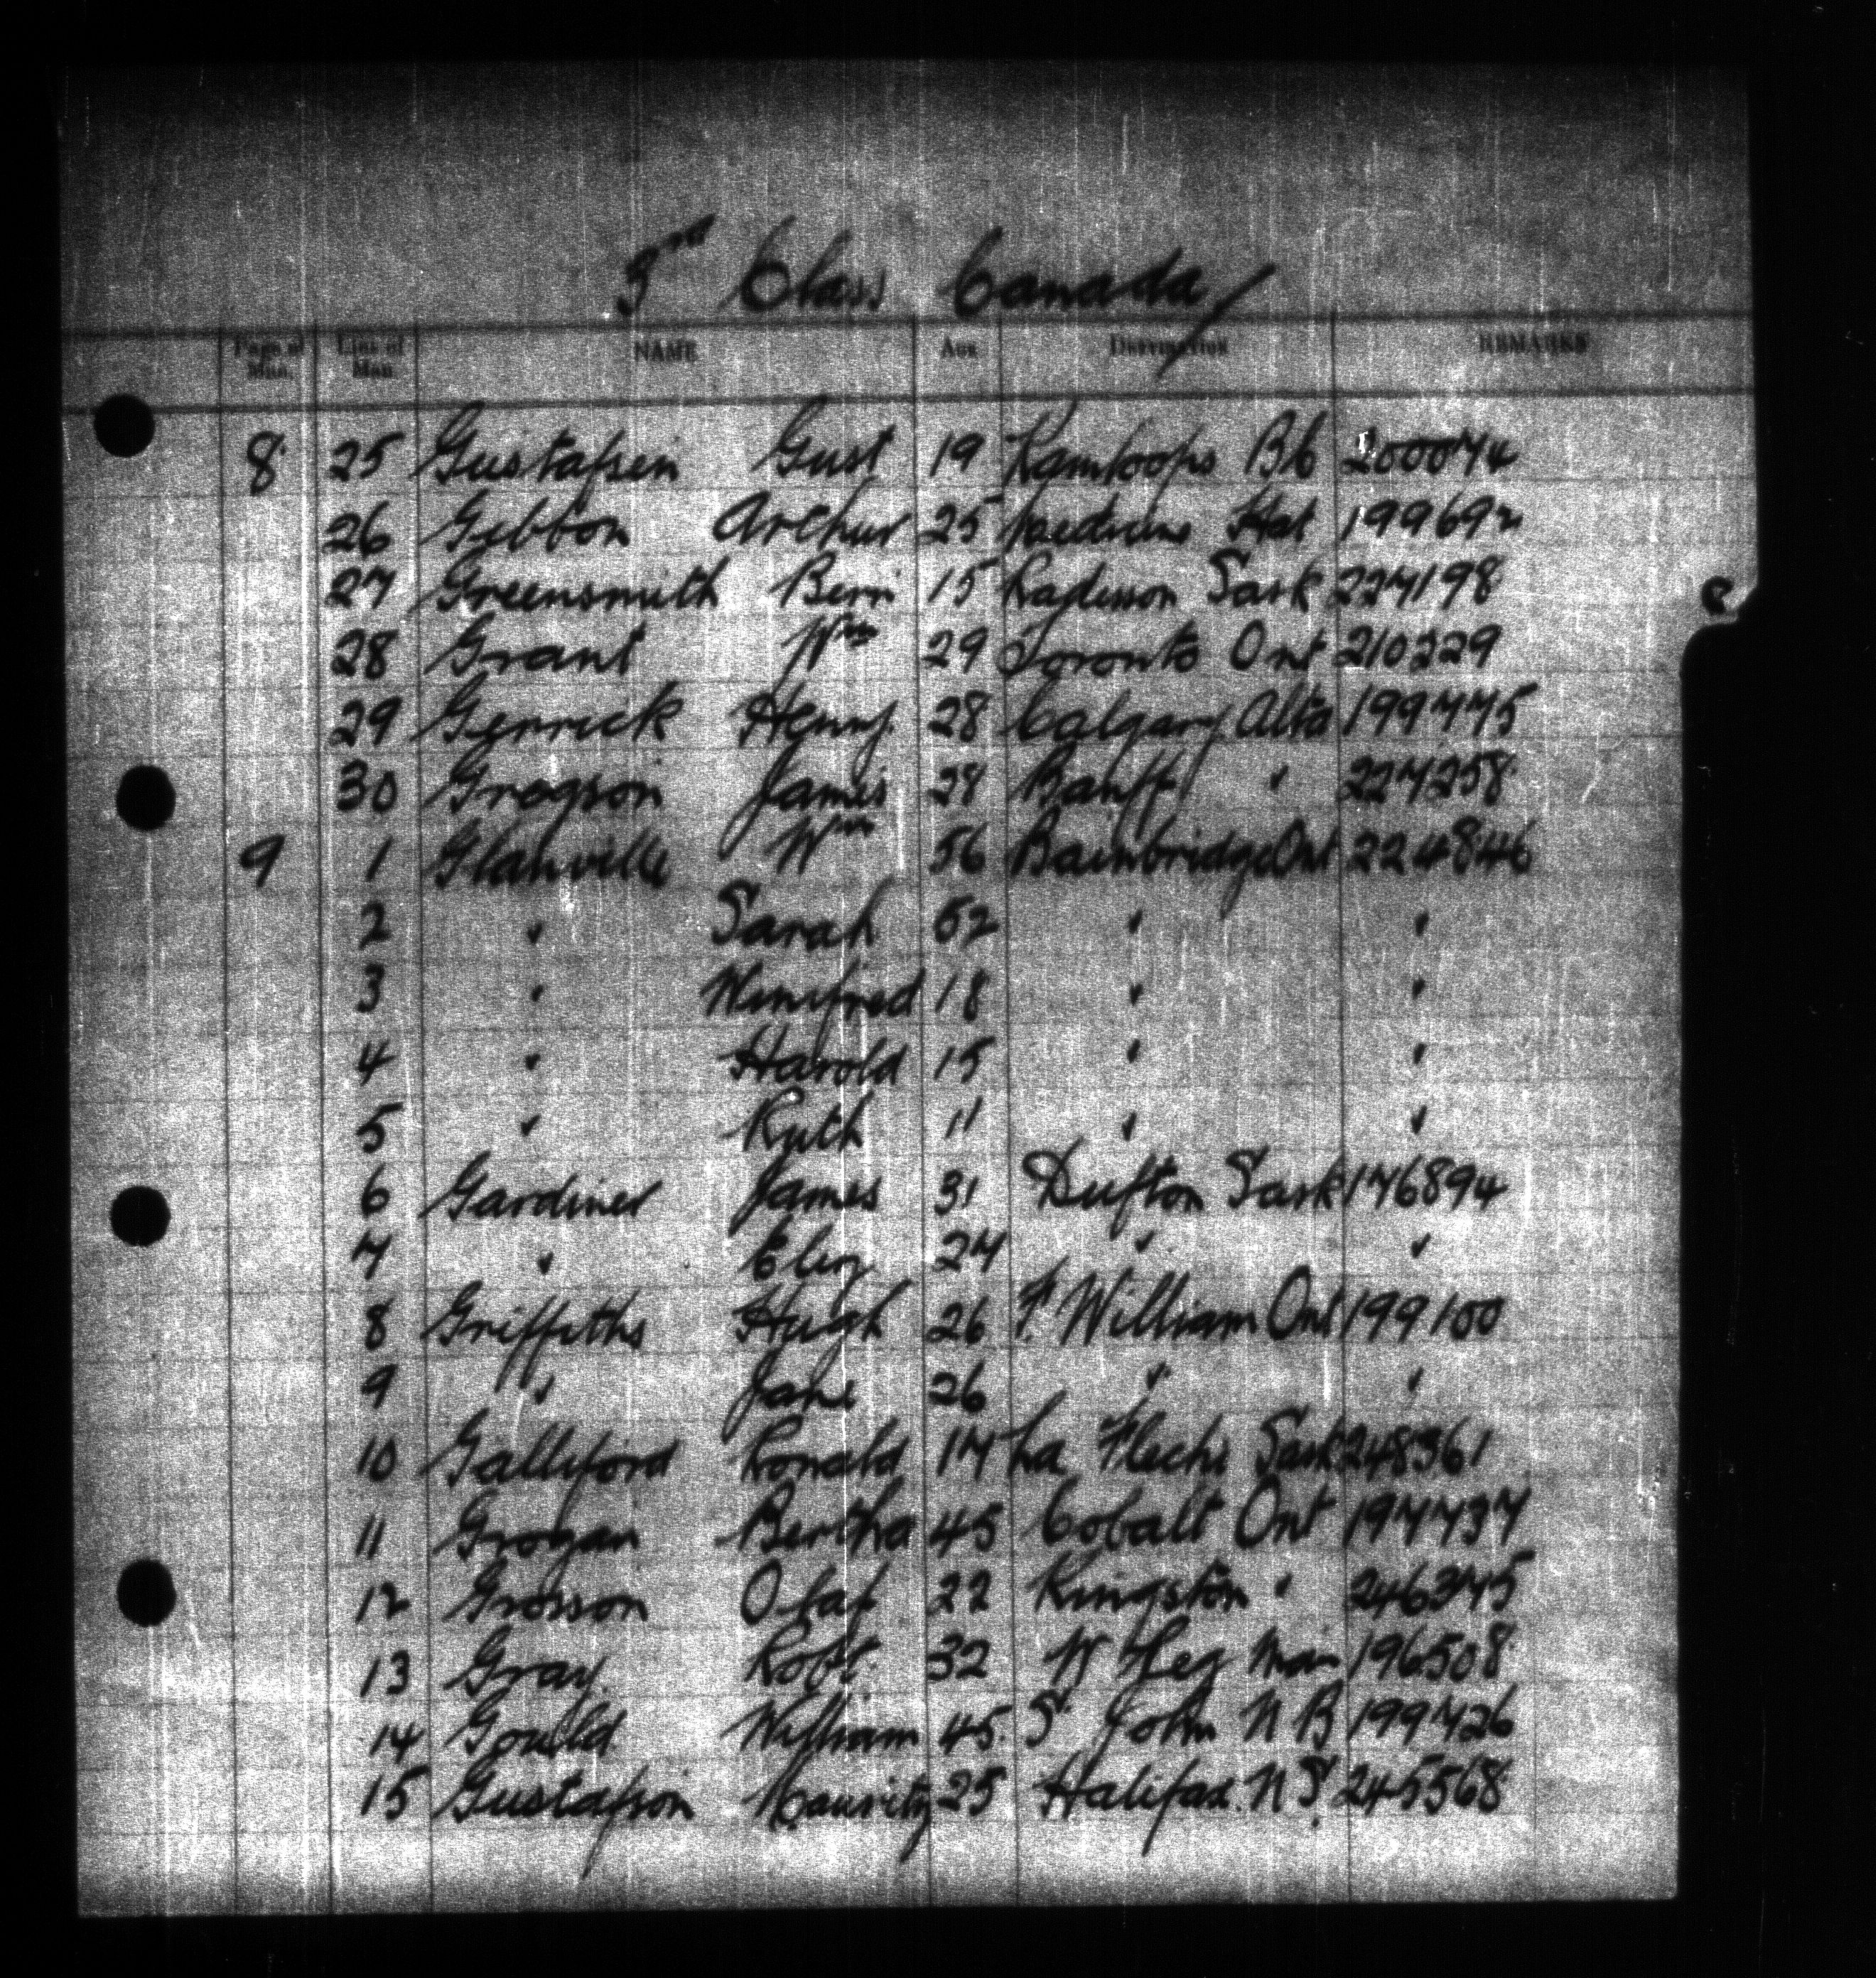 3rd Class Canada
Page of Man. Line of Man. NAME AGE DESTINATION REMARKS
8 25 Gustafsen Gust 19 Kamloops BC 200074
26 Gibbon Arthur 25 Medicine Hat 199692
27 Greensmith Benj 15 Radisson Sask 227198
28 Grant Wm 29 Toronto Ont 210229
29 Gerrick Henry 28 Calgary Alta 199775
30 Gregson James 28 Banff " 227258
9 1 Glanville Wm 56 Bainbridge Ont 224846
2 " Sarah 52 " "
3 " Winifred 18 " "
4 " Harold 15 " "
5 " Ruth 11 " "
6 Gardiner James 31 Dufton Sask 176894
7 " Eliz 27 " "
8 Griffiths Hugh 26 Ft. William Ont 199100
9 " Jane 26 " "
10 Galliford Ronald 17 La Fleche Sask 248361
11 Grogan Bertha 45 Cobalt Ont 197737
12 Grosson Olaf 22 Kingston " 246375
13 Gray Robt. 32 W Peg Man 196508
14 Gould William 45 St John N B 199726
15 Gustafson Mauritz 25 Halifax N S 245568